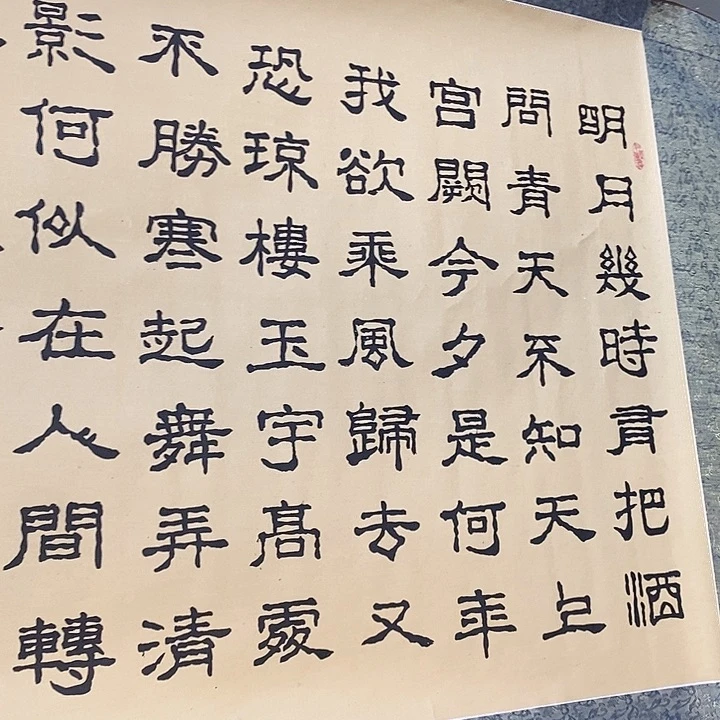 明月幾時有把酒
問青天不知天上
宮闕今夕是何年
我欲乘風歸去又
恐瓊樓玉宇高處
不勝寒起舞弄清
影何似在人間轉